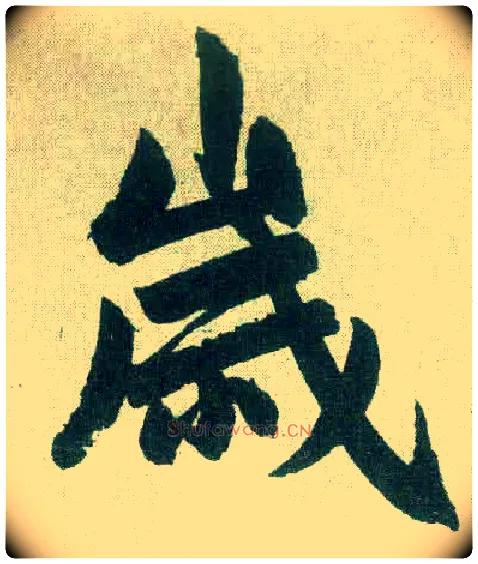 歳
Shufawang.CN